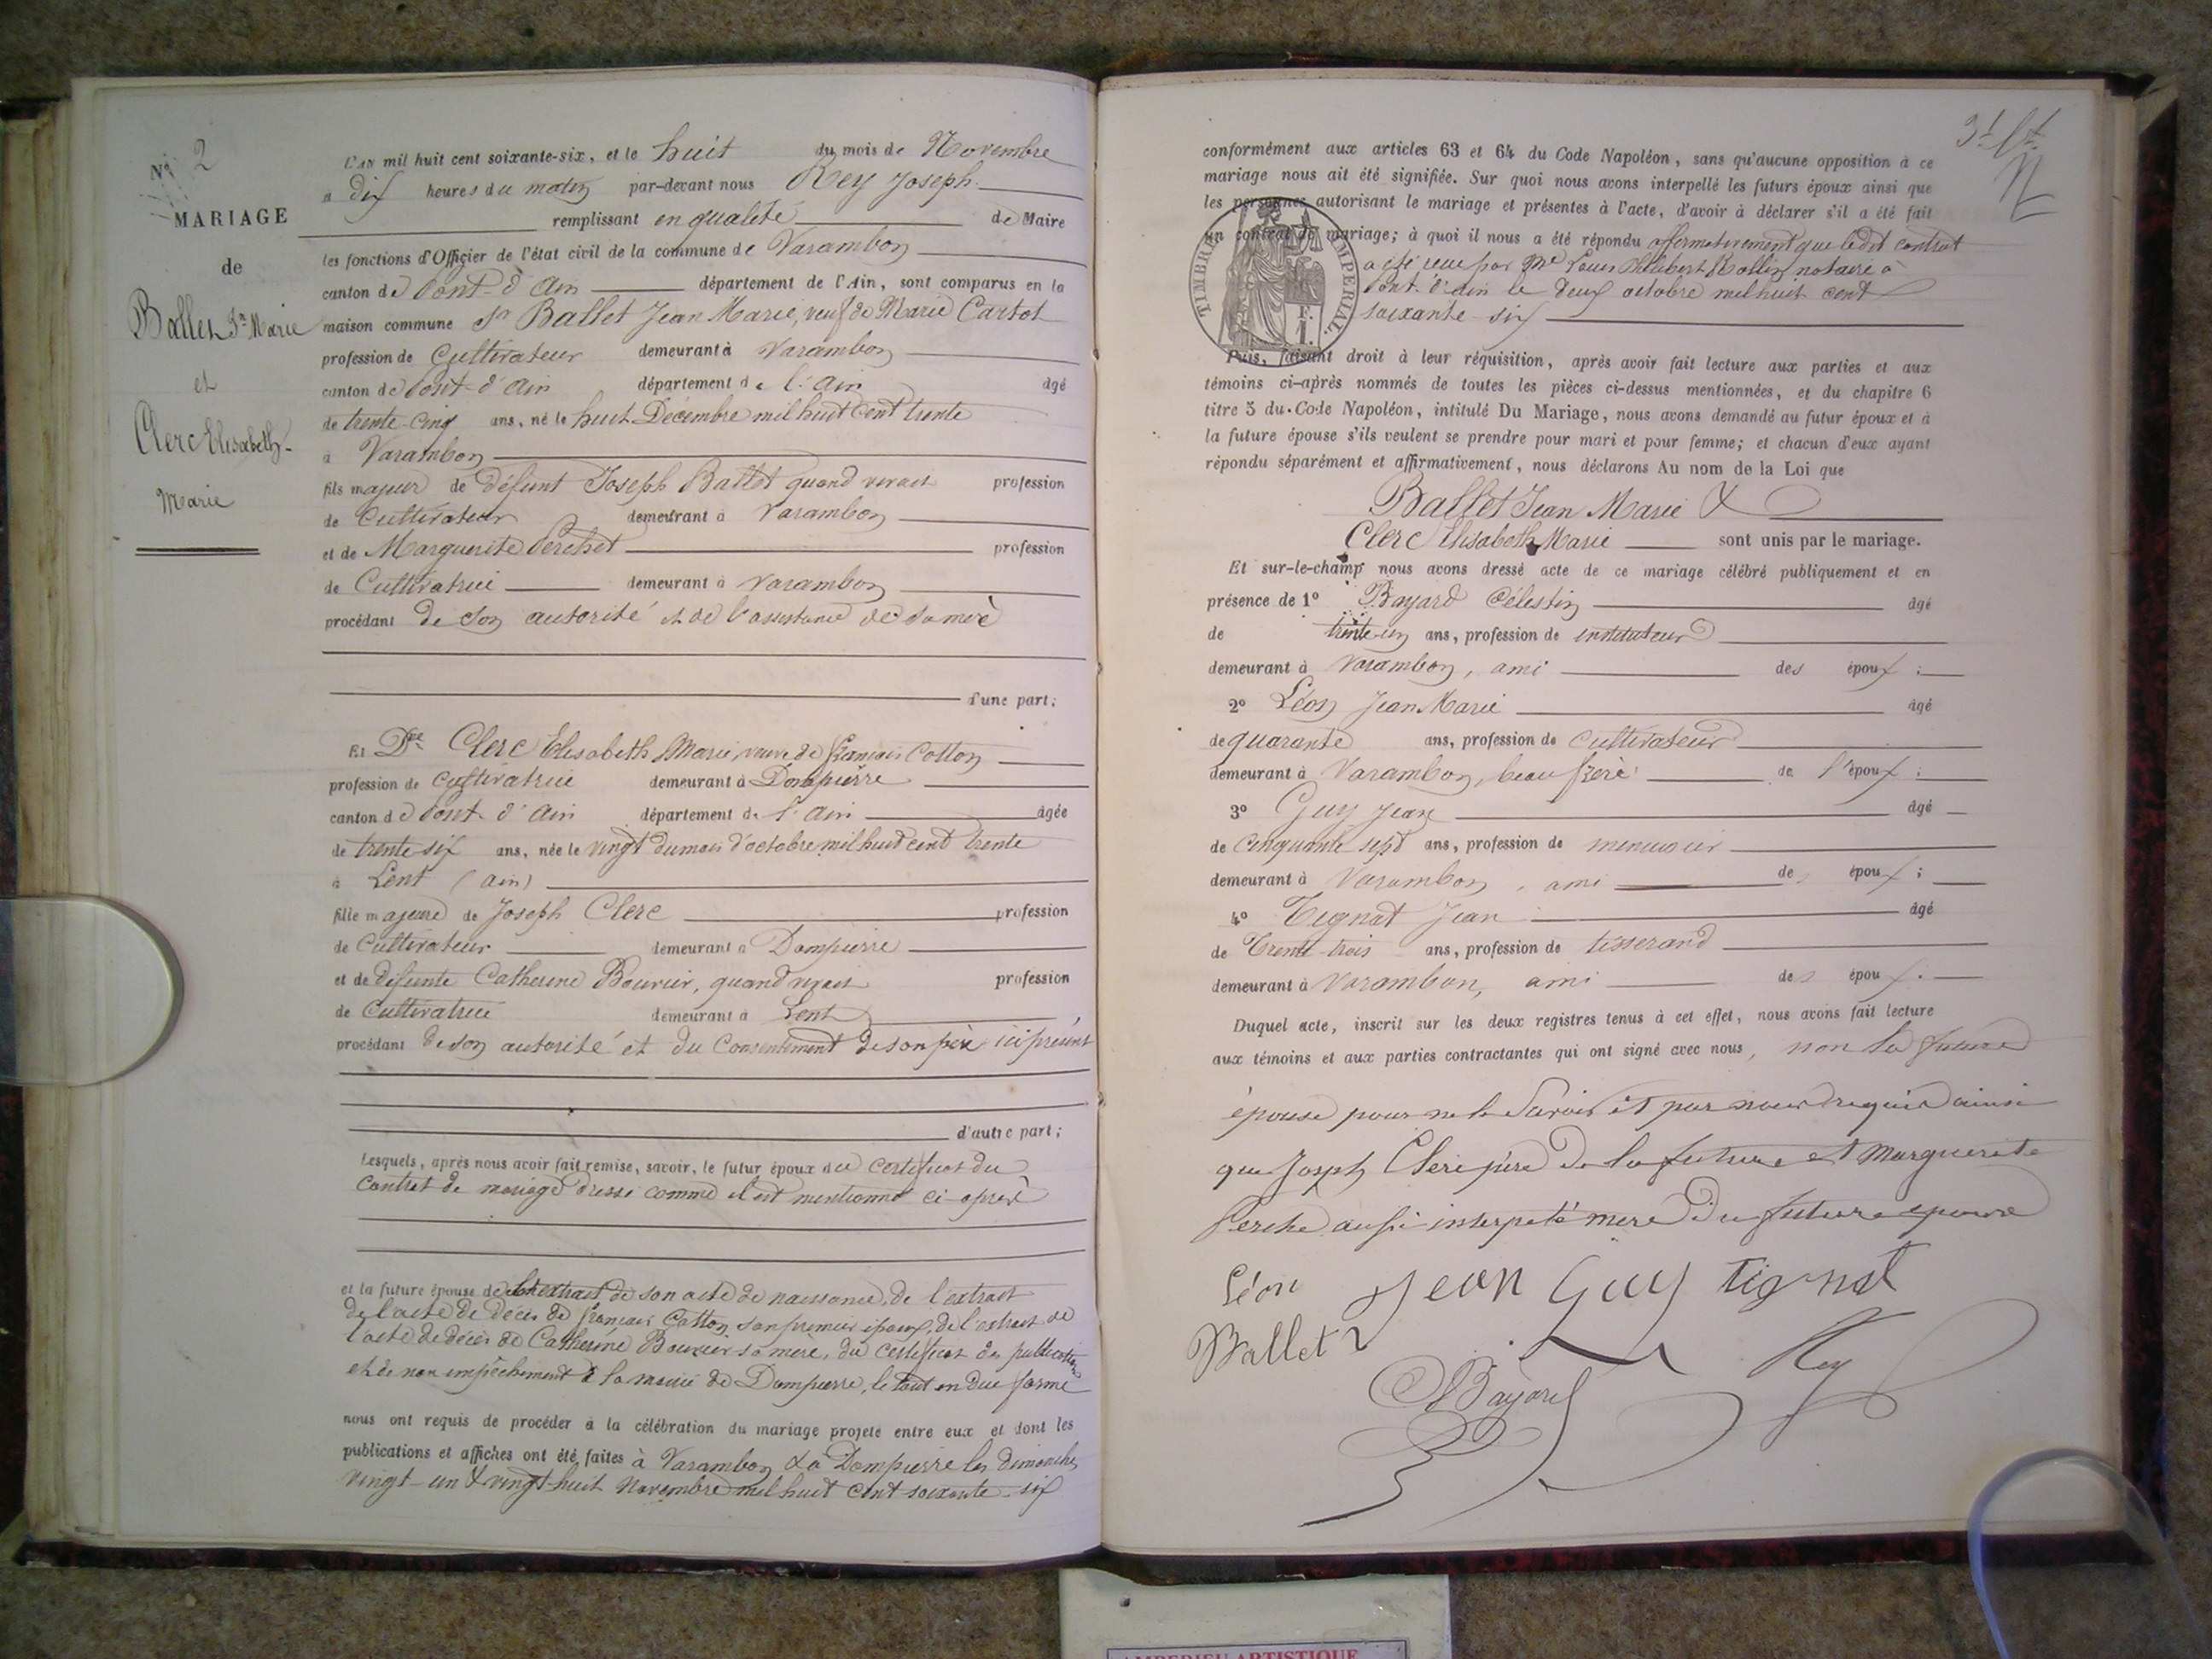 N° 2
MARIAGE
de
Ballet Jn Marie
et
Clerc Elisabeth-
Marie
L'AN mil huit cent soixante-six, et le huit du mois de Novembre
a dix heures du matin par-devant nous Rey Joseph
remplissant en qualité de Maire
les fonctions d'Officier de l'état civil de la commune de Varambon
canton de Pont-d'Ain département de l'Ain, sont comparus en la
maison commune Sr Ballet Jean Marie, veuf de Marie Cartot
profession de Cultivateur demeurant à Varambon
canton de Pont-d'Ain département de l'Ain âgé
de trente-cinq ans, né le huit Décembre mil huit cent trente
à Varambon
fils majeur de défunt Joseph Ballet quand vivait profession
de Cultivateur demeurant à Varambon
et de Marguerite Perchet profession
de Cultivatrice demeurant à Varambon
procédant de son autorité et de l'assistance de sa mère
d'une part;
Et Dme Clerc Elisabeth Marie, veuve de François Cotton
profession de cultivatrice demeurant à Dompierre
canton de Pont d'Ain département de l'Ain âgée
de trente six ans, née le vingt du mois d'octobre mil huit cent trente
à Lent (Ain)
fille majeure de Joseph Clerc profession
de Cultivateur demeurant à Dompierre
et de défunte Catherine Bouvier, quand vivait profession
de Cultivatrice demeurant à Lent
procédant de son autorité et du Consentement de son père ici présent
d'autre part;
Lesquels, après nous avoir fait remise, savoir, le futur époux du certificat du
contrat de mariage dressé comme il est mentionné ci-après
et la future épouse de l'extrait de son acte de naissance, de l'extrait
de l'acte de décès de François Cotton son premier époux, de l'extrait de
l'acte de décès de Catherine Bouvier sa mère, du certificat de publication
et de non empêchement à la mairie de Dompierre, le tout en due forme
nous ont requis de procéder à la célébration du mariage projeté entre eux et dont les
publications et affiches ont été faites à Varambon & à Dompierre les dimanches
vingt-un & vingt-huit Novembre mil huit cent soixante-six
conformément aux articles 63 et 64 du Code Napoléon, sans qu'aucune opposition à ce
mariage nous ait été signifiée. Sur quoi nous avons interpellé les futurs époux ainsi que
les personnes autorisant le mariage et présentes à l'acte, d'avoir à déclarer s'il a été fait
un contrat de mariage; à quoi il nous a été répondu affirmativement que ledit contrat
a été reçu par Me Louis Philibert Rollin notaire à
Pont-d'Ain le deux octobre mil huit cent
soixante-six
TIMBRE IMPERIAL.
Puis, faisant droit à leur réquisition, après avoir fait lecture aux parties et aux
témoins ci-après nommés de toutes les pièces ci-dessus mentionnées, et du chapitre 6
titre 5 du Code Napoléon, intitulé Du Mariage, nous avons demandé au futur époux et à
la future épouse s'ils veulent se prendre pour mari et pour femme; et chacun d'eux ayant
répondu séparément et affirmativement, nous déclarons Au nom de la Loi que
Ballet Jean Marie &
Clerc Elisabeth Marie sont unis par le mariage.
Et sur-le-champ nous avons dressé acte de ce mariage célébré publiquement et en
présence de 1° Bayard Célestin âgé
de trente-un ans, profession de instituteur
demeurant à Varambon, ami des époux;
2° Léon Jean Marie âgé
de quarante ans, profession de cultivateur
demeurant à Varambon, beau frère de l'époux;
3° Guy Jean âgé
de cinquante sept ans, profession de menuisier
demeurant à Varambon, ami des époux;
4° Tignat Jean âgé
de Trente-trois ans, profession de tisserand
demeurant à Varambon, ami des époux.
Duquel acte, inscrit sur les deux registres tenus à cet effet, nous avons fait lecture
aux témoins et aux parties contractantes qui ont signé avec nous, non la future
épouse pour ne le savoir et par nous requis ainsi
que Joseph Clerc père de la future et Marguerite
Perche aussi mère du future epouse
Léon Jean Guy Tignat
Ballet Rey
Bayard
AMBERIEU ARTISTIQUE